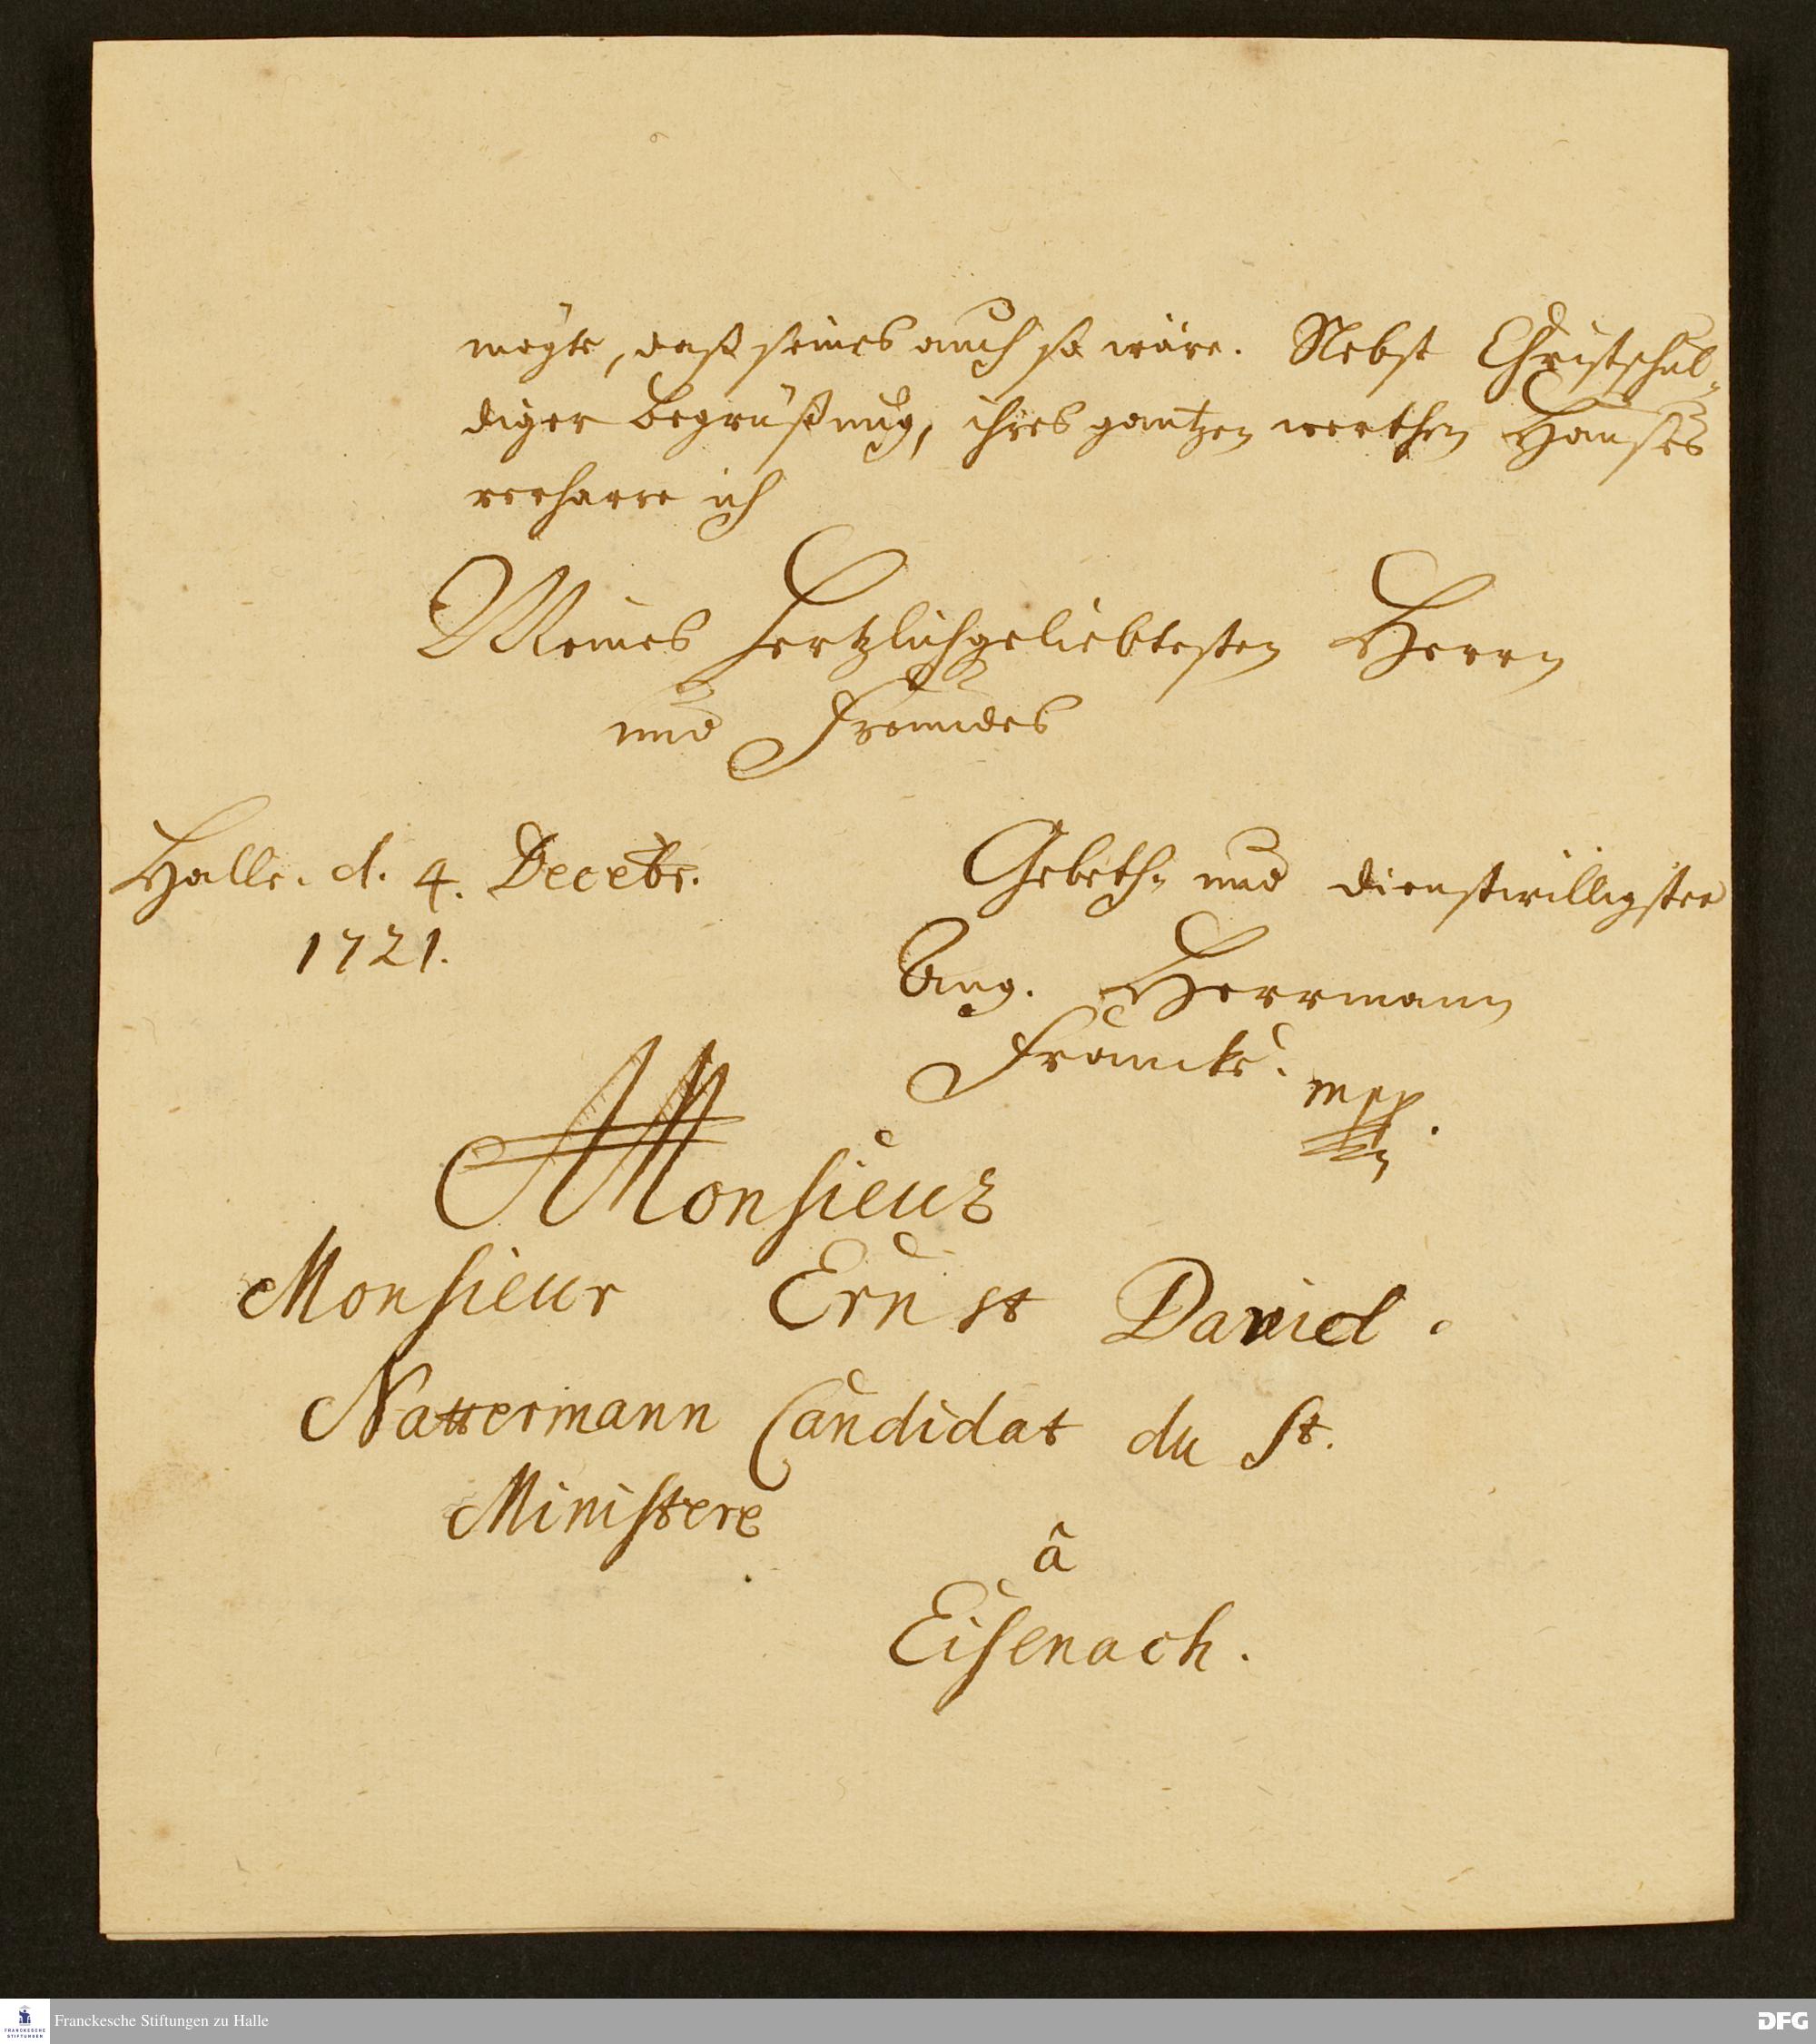 mögte, daß seines auch so wäre. Nebst Christschul-
diger Begrüßung, ihres gantzen werthen Hauses
verharre ich
Meines hertzlichgeliebtesten Herrn
und Freundes
Halle. d. 4. Decebr.
1721.
Gebeth- und dienstwilligster
Aug. Herrmann
Francke.
mpp.
Monsieur
Monsieur Ernst David
Nattermann Candidat du St.
Ministere
â
Eisenach.
FRANCKESCHE STIFTUNGEN
Franckesche Stiftungen zu Halle
DFG